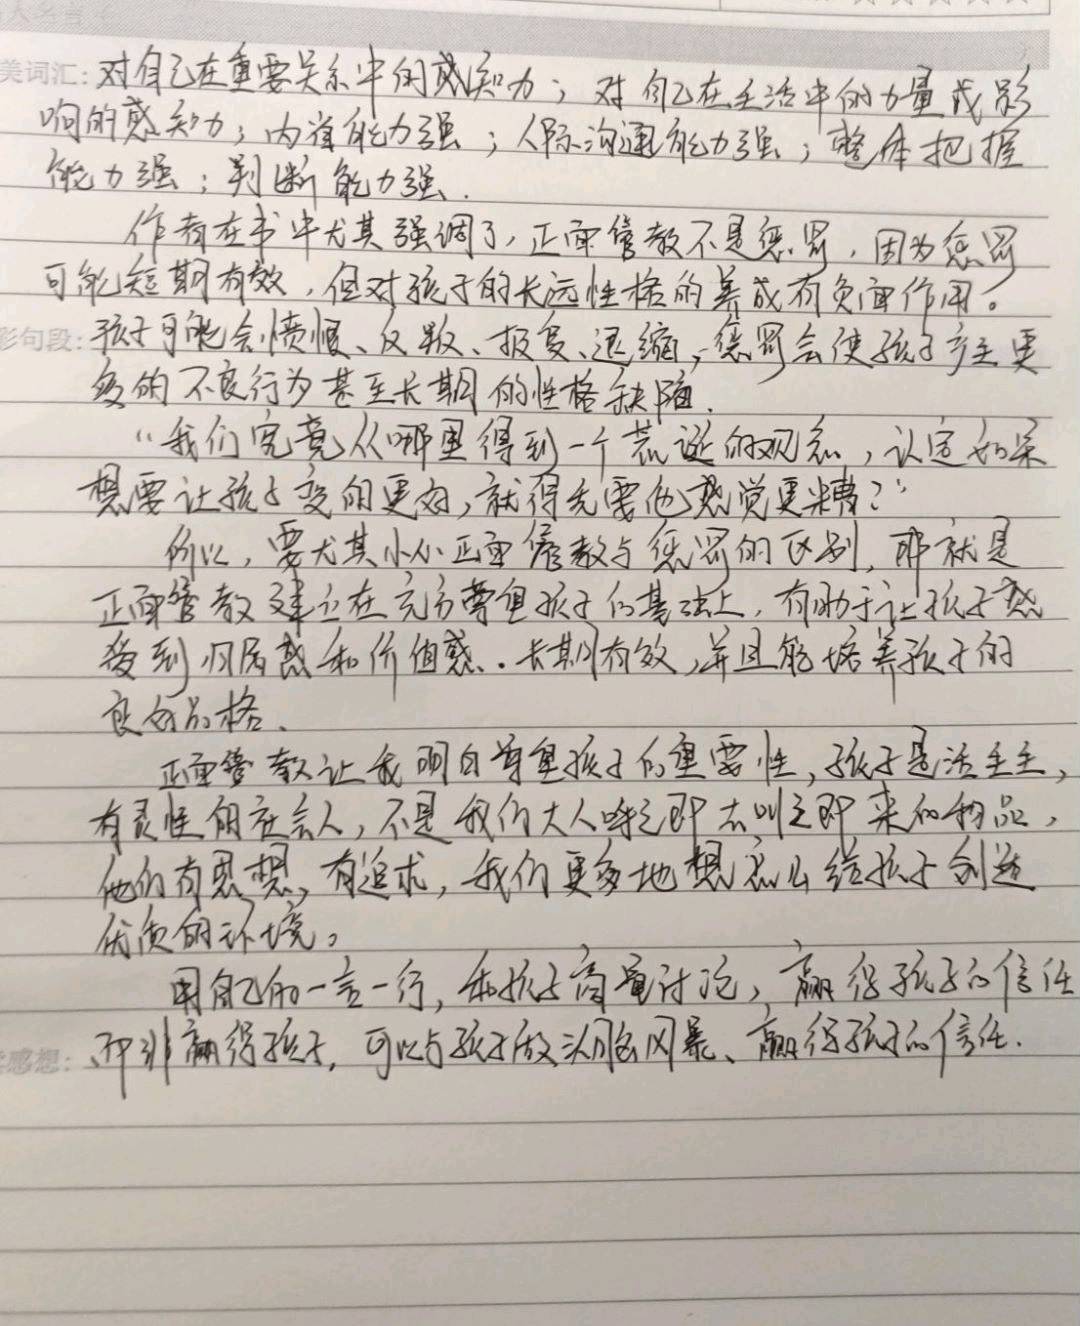 美词汇:对自己在重要关系中的感知力；对自己在生活中的力量或影
响的感知力；内省能力强；人际沟通能力强；整体把握
能力强；判断能力强.
作者在书中尤其强调了,正面管教不是惩罚,因为惩罚
可能短期有效,但对孩子的长远性格的养成有负面作用。
彩句段:孩子可能会愤恨、反叛、报复、退缩,惩罚会使孩子产生更
多的不良行为甚至长期的性格缺陷.
“我们究竟从哪里得到一个荒诞的观念,认定如果
想要让孩子变的更好,就得先要他感觉更糟?”
所以,要尤其小心正面管教与惩罚的区别,那就是
正面管教建立在充分尊重孩子的基础上,有助于让孩子感
受到归属感和价值感..长期有效,并且能培养孩子的
良好品格.
正面管教让我明白尊重孩子的重要性,孩子是活生生,
有灵性的社会人,不是我们大人呼之即去叫之即来的物品,
他们有思想,有追求,我们更多地想怎么给孩子创造
优质的环境。
用自己的一言一行,和孩子商量讨论,赢得孩子的信任
感想:而非赢得孩子,可以与孩子做头脑风暴、赢得孩子的信任.